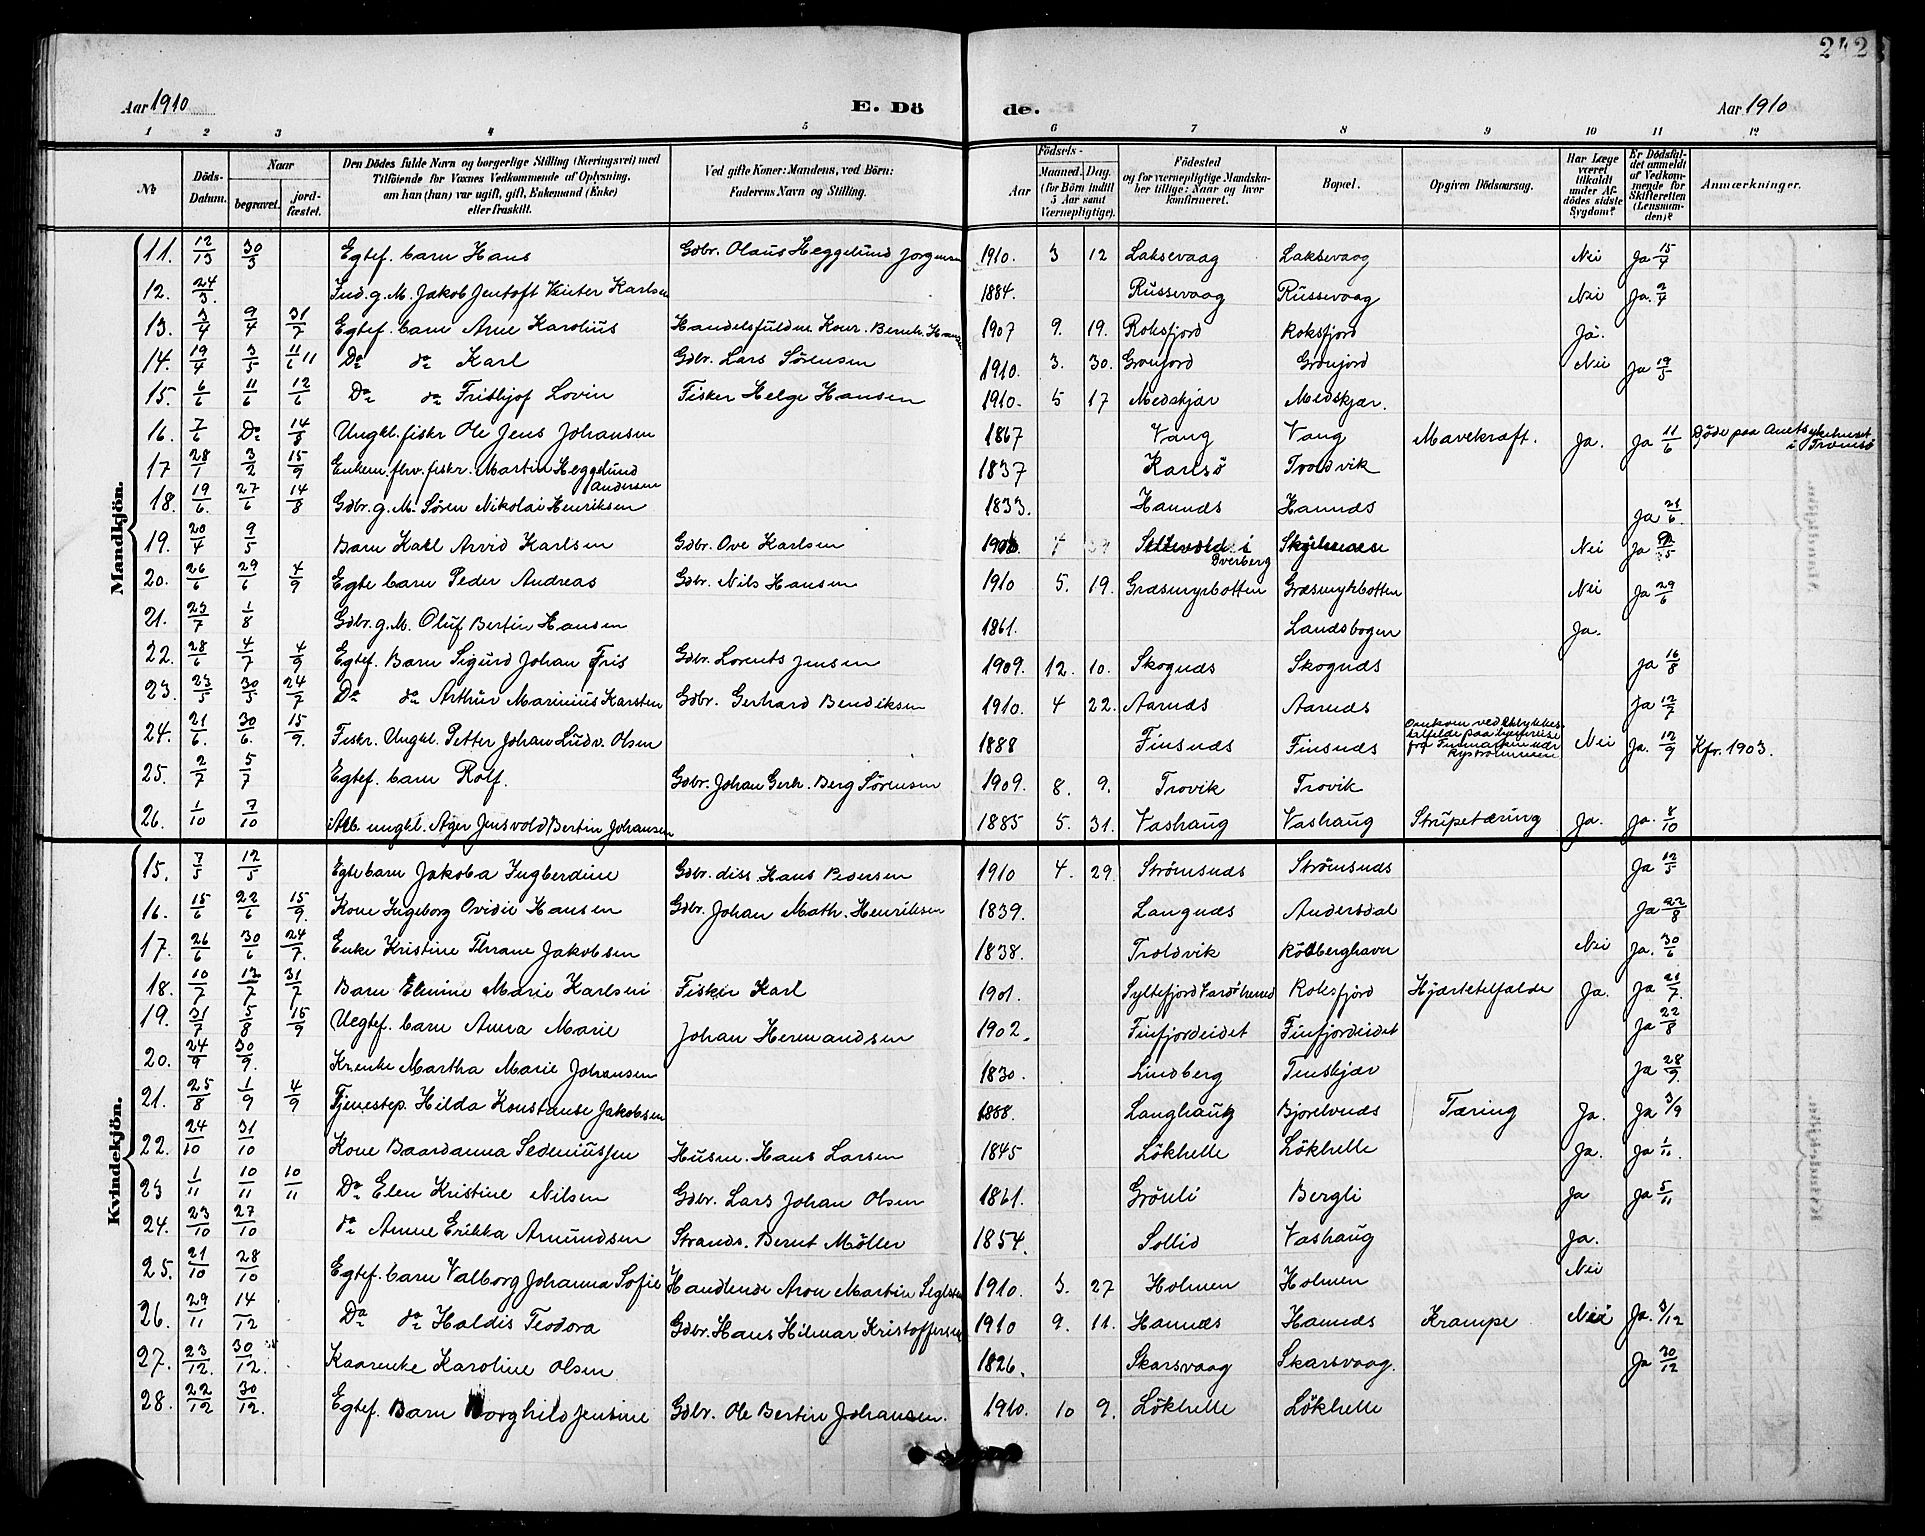 242
Aar 1910 E. Dö de. Aar 1910
1 2 3 4 5 6 7 8 9 10 11 12
No Döds-Datum. Naar begravet. jord-fæstet. Den Dödes fulde Navn og borgerlige Stilling (Næringsvei) med Tilföiende for Voxnes Vedkommende af Oplysning, om han (hun) var ugift, gift, Enkemand (Enke) eller fraskilt. Ved gifte Koner: Mandens, ved Börn: Faderens Navn og Stilling. Födsels- Aar Maaned. Dag. (for Börn indtil 5 Aar samt Værnepligtige). Födested og for værnepligtige Mandskaber tillige: Naar og hvor konfirmeret. Bopæl. Opgiven Dödsaarsag. Har Læge været tilkaldt under Afdödes sidste Sygdom? Er Dödsfaldet anmeldt af Vedkommende for Skifteretten (Lensmanden)? Anmærkninger.
Mandkjön.
11. 12/13 30/3 Egtef. barn Hans Gdbr. Olaus Heggelund Jorgensen 1910. 3 12 Laksevaag Laksevaag Nei Ja 15/4
12. 24/3. Ind. g. M. Jakob Jentoft Winter Karlsen 1884. Russevaag Russevaag Nei Ja. 2/4
13. 3/4 9/4 31/7 Egtef. barn Arne Karolius Handelsfuldm. Konr. Bernh. Hansen 1907 9. 19. Roksfjord Roksfjord Ja.
14. 19/4 3/5 11/6 11 Do do Karl Gdbr. Lars Sørensen 1910. 3. 30. Gronjord Gronjord Nei Ja 19/5
15. 6/6 11/6 12/6 Do do Frithjof Lovin Fisker Helge Hansen 1910. 5 17 Medskjær Medskjær.
16. 7/6 Do 14/8 Ungkl. fiskr Ole Jens Johansen 1867 Vang Vang Mavekræft. Ja. Ja 11/6 Døde paa Amtsykehuset i Tromsø
17 28/1 3/2 15/9 Enkem. fhv. fiskr. Martin Heggelund Andersen 1837 Karlsö Troldvik
18. 19/6. 27/6 14/8 Gdbr. g. M. Søren Nikolai Henriksen 1833. Hannæs Hannæs Ja 21/6.
19. 20/4 9/5 Barn Karl Arvid Karlsen Gdbr. Ove Karlsen Overberg Nei Ja
20. 26/6 29/6 4/9 Egte barn Peder Andreas Gdbr. Nils Hansen 1910 5. 19. Græsmyrbotten Græsmyrbotten Nei Ja 29/6
21. 23/7 1/8 Gdbr. g. M. Oluf Bertin Hansen 1861. Landsbogen Ja.
22. 28/6 4/7 4/9 Egtef. Barn Sigurd Johan Fris Gdbr. Lorents Jensen 1909. 12. 10. Skognæs Skognæs Ja 16/8
23. 23/5 30/5 24/7 Do do Arthur Marinius Karsten Gdbr. Gerhard Bendiksen 1910. 4 22. Aarnæs Aarnæs Ja 12/7
24. 21/6. 30/6. 15/9. Fiskr. Ungkl. Petter Johan Ludv. Olsen 1888 Finsnæs Finsnæs Omkom ved Ulykkestilfælde paa hjemreise fra Finmarken Nei Ja. 12/9 Kfr. 1903.
25. 2/7 5/7 Egtef. barn Rolf. Gdbr. Johan Gerh. Berg Sørensen 1909. 8. 9. Trovik Trovik
26. 1/10 7/10 Arb. ungkl. Ager Jensvold Bertin Johansen 1885 5. 31. Vashaug Vashaug Strupetæring Ja. Ja. 8/10
Kvindekjön.
15. 7/5 12/5 Egte barn Jakoba Ingberdine Gdbr. diss. Hans Pedersen 1910 4. 29. Strømsnæs Strømsnæs Ja 12/5
16. 15/6 22/6 15/9. Kone Ingeborg Ovidie Hansen Gdbr. Johan Math. Henriksen 1839. Langnæs Andersdal Ja 22/8
17. 26/6 30/6 24/7. Enke Kristine Thrane Jakobsen 1838. Troldvik Rödberghavn Nei Ja. 30/6
18. 10/7 13/7 31/7 Barn Elenine Marie Karlsen Fisker Karl 1901. Syltefjord Vardöherred Roksfjord Hjærtetilfælde Ja. Ja 21/7.
19. 31/7 5/8 15/9 Uegtef. barn Anna Marie Johan Hermandsen 1902. Finfjordeidet Finfjordeidet Ja 22/8
20. 24/9 30/9. Krenke Martha Marie Johansen 1830. Lindberg Finskjær Ja 28/9.
21. 25/8 1/9 4/9 Tjenestep. Hilda Konstanse Jakobsen 1888. Langhaug Bjorelvnæs Tæring Ja. Ja 3/9
22. 24/10 31/10 Kone Baardanna Sedeniussen Husm. Hans Larsen 1845 Lökhelle Lökhelle Ja. Ja 1/11.
23 1/11 10/11 10/11 Do Elen Kristine Nilsen Gdbr. Lars Johan Olsen 1861. Grönli Bergli Ja Ja 5/11
24. 23/10 27/10 do Anne Erikka Amundsen Strands. Bernt Möller 1854. Sollid Vashaug Ja.
25. 21/10 28/10 Egtef. barn Valborg Johanna Sofie Handlende Aron Martin 1910. 3. 27 Holmen Holmen Nei
26. 29/11 14/12 Do do Haldis Teodora Gdbr. Hans Hilmar Kristoffersen 1910 9. 11. Hannæs Hannæs Krampe Nei Ja. 3/12
27. 23/12. 30/12. Kaarenke Karoline Olsen 1826. Skarsvaag Skarsvaag. Ja 30/12
28. 22/12 30/12. Egtef. Barn Borghild Jensine Gdbr. Ole Bertin Johansen. 1910. 10 9. Lökhelle Lökhelle